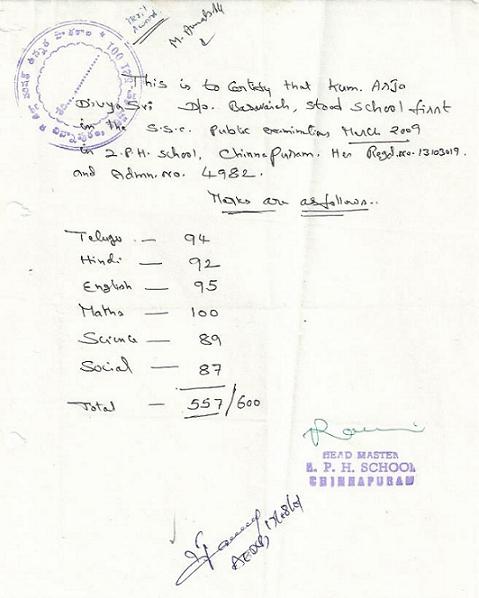 Merit
Award
This is to Certify that Kum. Arja
Divya Sri D/o. Baswaiah, stood School first
in the S.S.C. Public examinations March 2009
in Z.P.H. School, Chinnapuram. Her Regd.no. 13103019.
and Admn.no. 4982.
Marks are as follows..
Telugu — 94
Hindi — 92
English — 95
Maths — 100
Science — 89
Social — 87
Total — 557/600
HEAD MASTER
Z. P. H. SCHOOL
CHINNAPURAM